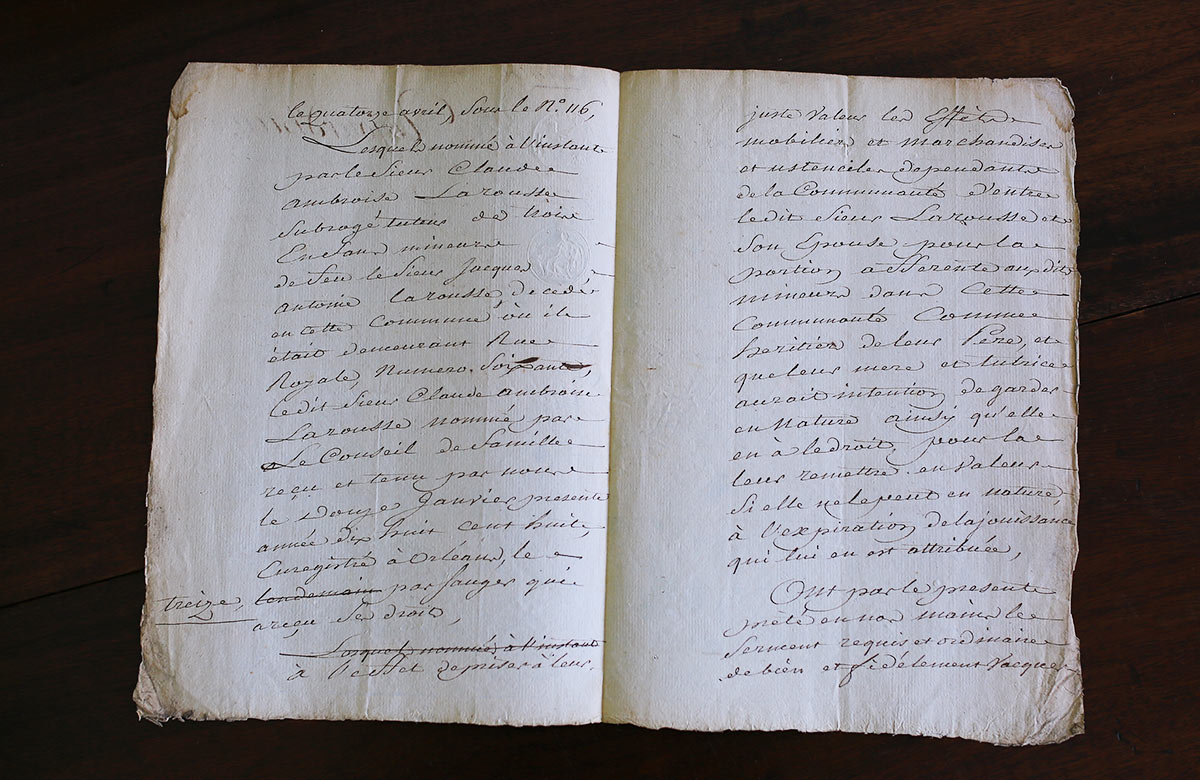 le quatorze avril, sous le N.º 116,
Lesquels nommé à l'instant
par le Sieur Claude
ambroise Larousse
subrogé tuteur de trois
Enfans mineurs
de feu le Sieur Jacques
antoine larousse decedé
en cette Commune où il
était demeurant Rue
Royale, Numero Soixante,
le dit Sieur Claude ambroise
Larousse nommé par
Le Conseil de famille
reçu et tenu par nous
le Douze Janvier présente
année dix huit cent huit,
Enregistré à Orléans, le
treize, lendemain par Sauger qui
a reçu Ses droits,
Lesquels nommés à l'instant
à l'effet de priser à leur
juste Valeur les Effets
mobiliers et marchandises
et ustenciles dependants
de la Communauté d'entre
le dit Sieur Larousse et
Son Epouse pour la
portion afférente aux dits
mineurs dans Cette
Communauté Comme
heritiers de leur Père, et
que leur mere et tutrice
aurait intention de garder
en Nature ainsi qu'elle
en à le droit, pour la
leur remettre en valeur
Si elle ne le peut en nature,
à l'expiration de la jouissance
qui lui en est attribuée,
Ont par le presente
prêté en nos mains le
Serment requis et ordinaire
de bien et fidelement Vacquer